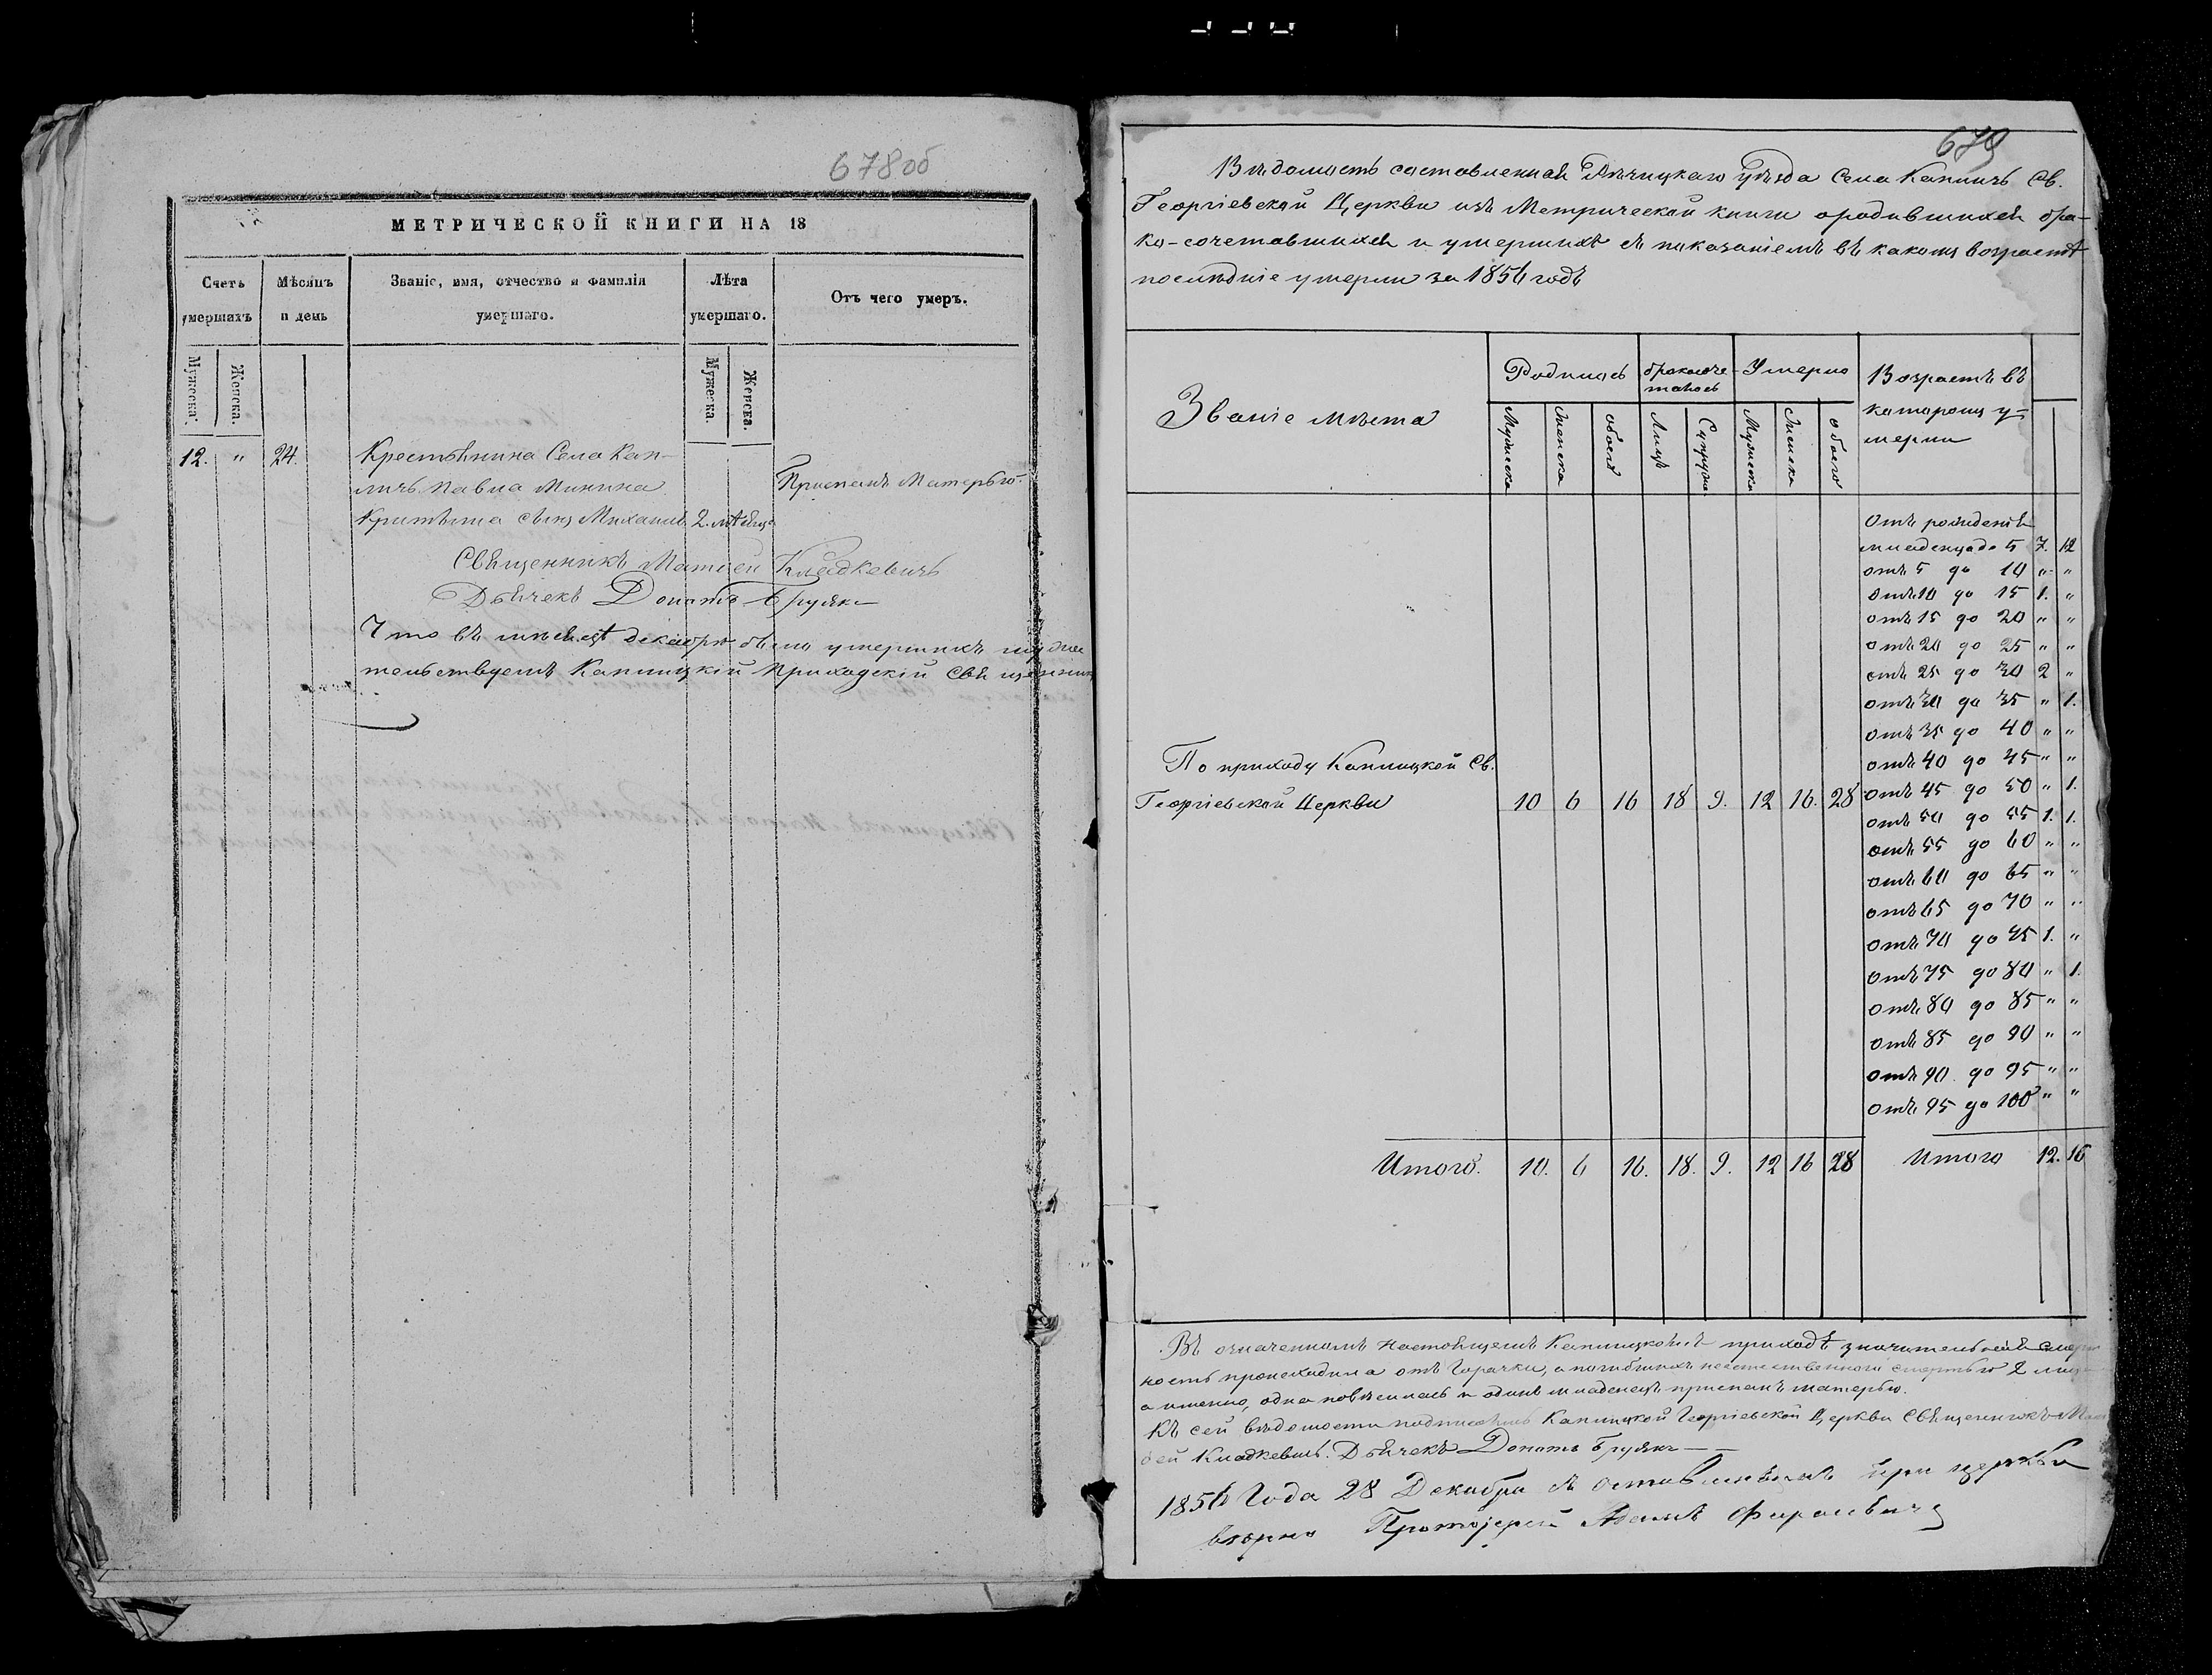 678об
МЕТРИЧЕСКОЙ КНИГИ НА 18
Счетъ умершихъ
Мѣсяцъ и день
Званіе, имя, отчество и фамилія умершаго.
Лѣта умершаго.
Отъ чего умеръ.
Мужеска.
Женска.
Мужеска.
Женска.
12. " 24. Крестьянина Села Кап-
личъ Павла Минина Приспанъ Матерью.
сынъ Михаилъ 2. мѣсяца
Священникъ Матѳей Кладкевичъ
Дьячекъ Донатъ
Что въ мѣсяцѣ декабрѣ было умершихъ
тельствуетъ Каплицкій Приходскій Священникъ
679
Вѣдомость составленная Рѣчицкаго уѣзда Села Капличъ Св.
Георгіевской Церкви изъ Метрической книги ородившихся бра-
ко-сочетавшихся и умершихъ съ показаніемъ въ какомъ возрастѣ
послѣдніе умерли за 1856 годъ
Званіе мѣста
Родилось
бракосоче-
талось
Умерло
Возрастъ въ
которомъ у-
мерли
Мужеска
Женска
обоего
Лицъ
Супруж
Мужеска
Женска
обоего
Отъ рожденія
младенца до 5 7. 12
отъ 5 до 10 " "
отъ 10 до 15 1. "
отъ 15 до 20 " "
отъ 20 до 25 " "
отъ 25 до 30 2 "
отъ 30 до 35 " 1.
отъ 35 до 40 " "
отъ 40 до 45 " "
По приходу Каплицкой Св.
Георгіевской Церкви 10 6 16 18 9. 12 16. 28
отъ 45 до 50 " 1.
отъ 50 до 55 1. 1.
отъ 55 до 60 " "
отъ 60 до 65 " "
отъ 65 до 70 " "
отъ 70 до 75 1. "
отъ 75 до 80 " 1.
отъ 80 до 85 " "
отъ 85 до 90 " "
отъ 90 до 95 " "
отъ 95 до 100 " "
Итого. 10. 6 16. 18. 9. 12 16 28 Итого 12. 16
Въ означенномъ настоящемъ приходѣ значительная смерт
ность происходила отъ Горячки, а погибшихъ неестественною смертью 2 лиц
а именно, одна повѣсилась и одинъ младенецъ приспанъ матерью.
Къ сей вѣдомости Каплицкой Георгіевской Церкви Священникъ Мат
ѳей Кладкевичъ. Дьячекъ Донатъ
1856 Года 28 Декабря съ при церкви
вѣрно Протоіерей Адамъ